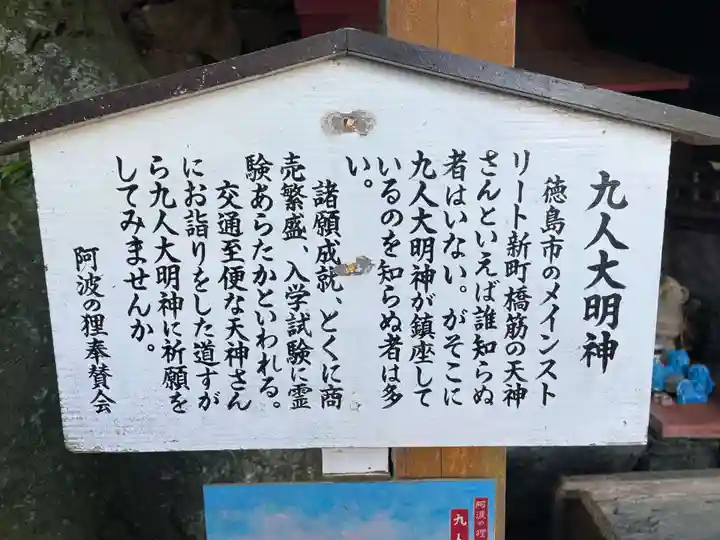 九人大明神
徳島市のメインスト
リート新町橋筋の天神
さんといえば誰知らぬ
者はいない。がそこに
九人大明神が鎮座して
いるのを知らぬ者は多
い。
諸願成就、とくに商
売繁盛、入学試験に霊
験あらたかといわれる。
交通至便な天神さん
にお詣りをした道すが
ら九人大明神に祈願を
してみませんか。
阿波の狸奉賛会
阿波の狸
九人